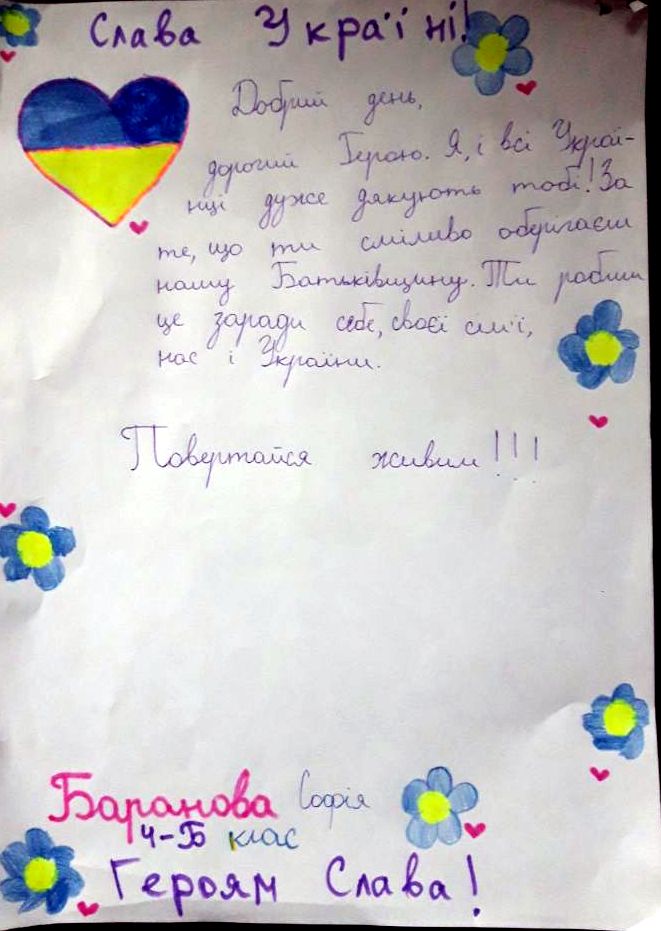 Слава Україні!
Добрий день,
дорогий Герою. Я, і всі Украї-
нці дуже дякують тобі! За
те, що ти сміливо оберігаєш
нашу Батьківщину. Ти робиш
це заради себе, своєї сім'ї,
нас і України.
Повертайся живим!!!
Баранова Софія
4-Б клас
Героям Слава!